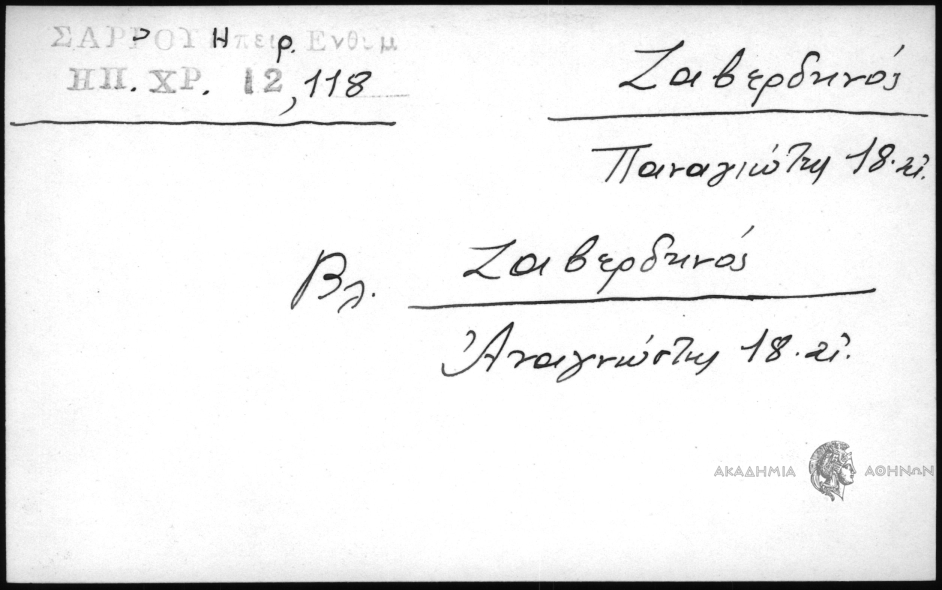 ΣΑΡΡΟΥ Ἠπειρ. Ενθυμ
ΗΠ. ΧΡ. 12, 118
Ζαβερδηνός
Παναγιώτης 18. αἰ.
Βλ. Ζαβερδηνός
Ἀναγνώστης 18. αἰ.
ΑΚΑΔΗΜΙΑ ΑΘΗΝΩΝ